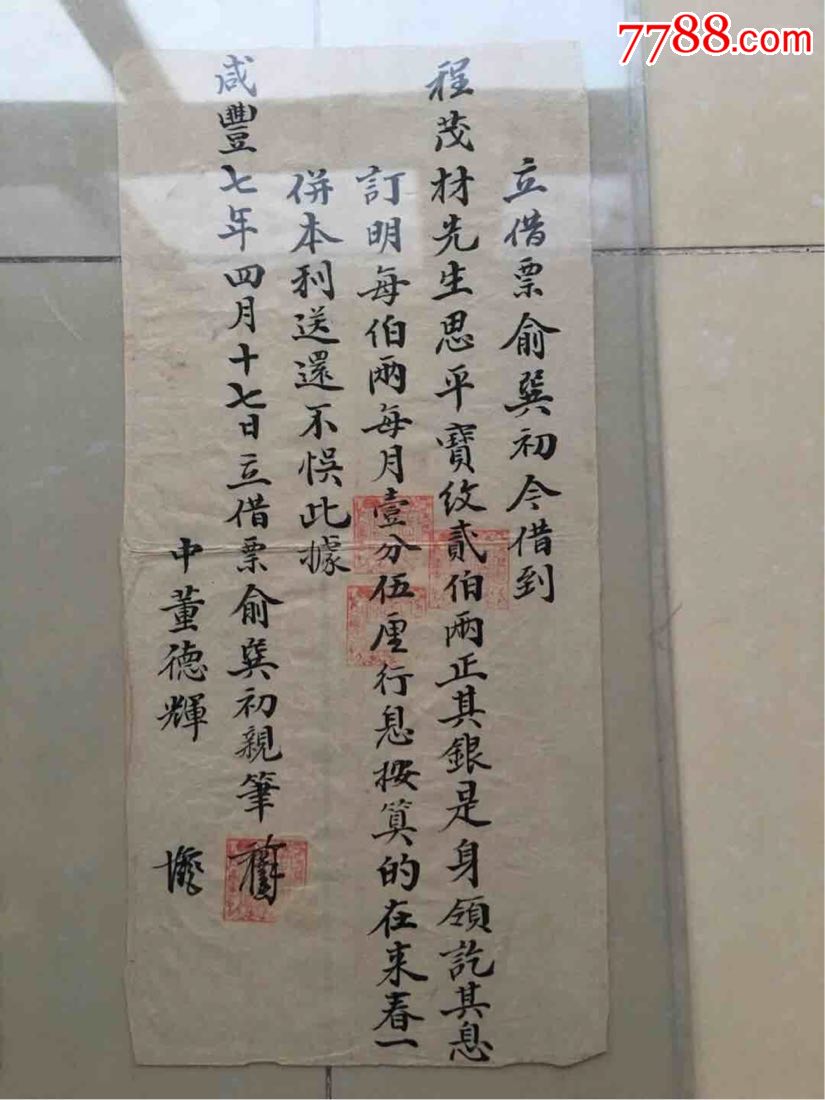 7788.com
立借票俞巽初今借到
程茂材先生思平寶纹貳伯兩正其銀是身領訖其息
訂明每伯兩每月壹分伍厘行息按算的在来春一
併本利送還不悮此據
咸豐七年四月十七日立借票俞巽初親筆
中董德輝